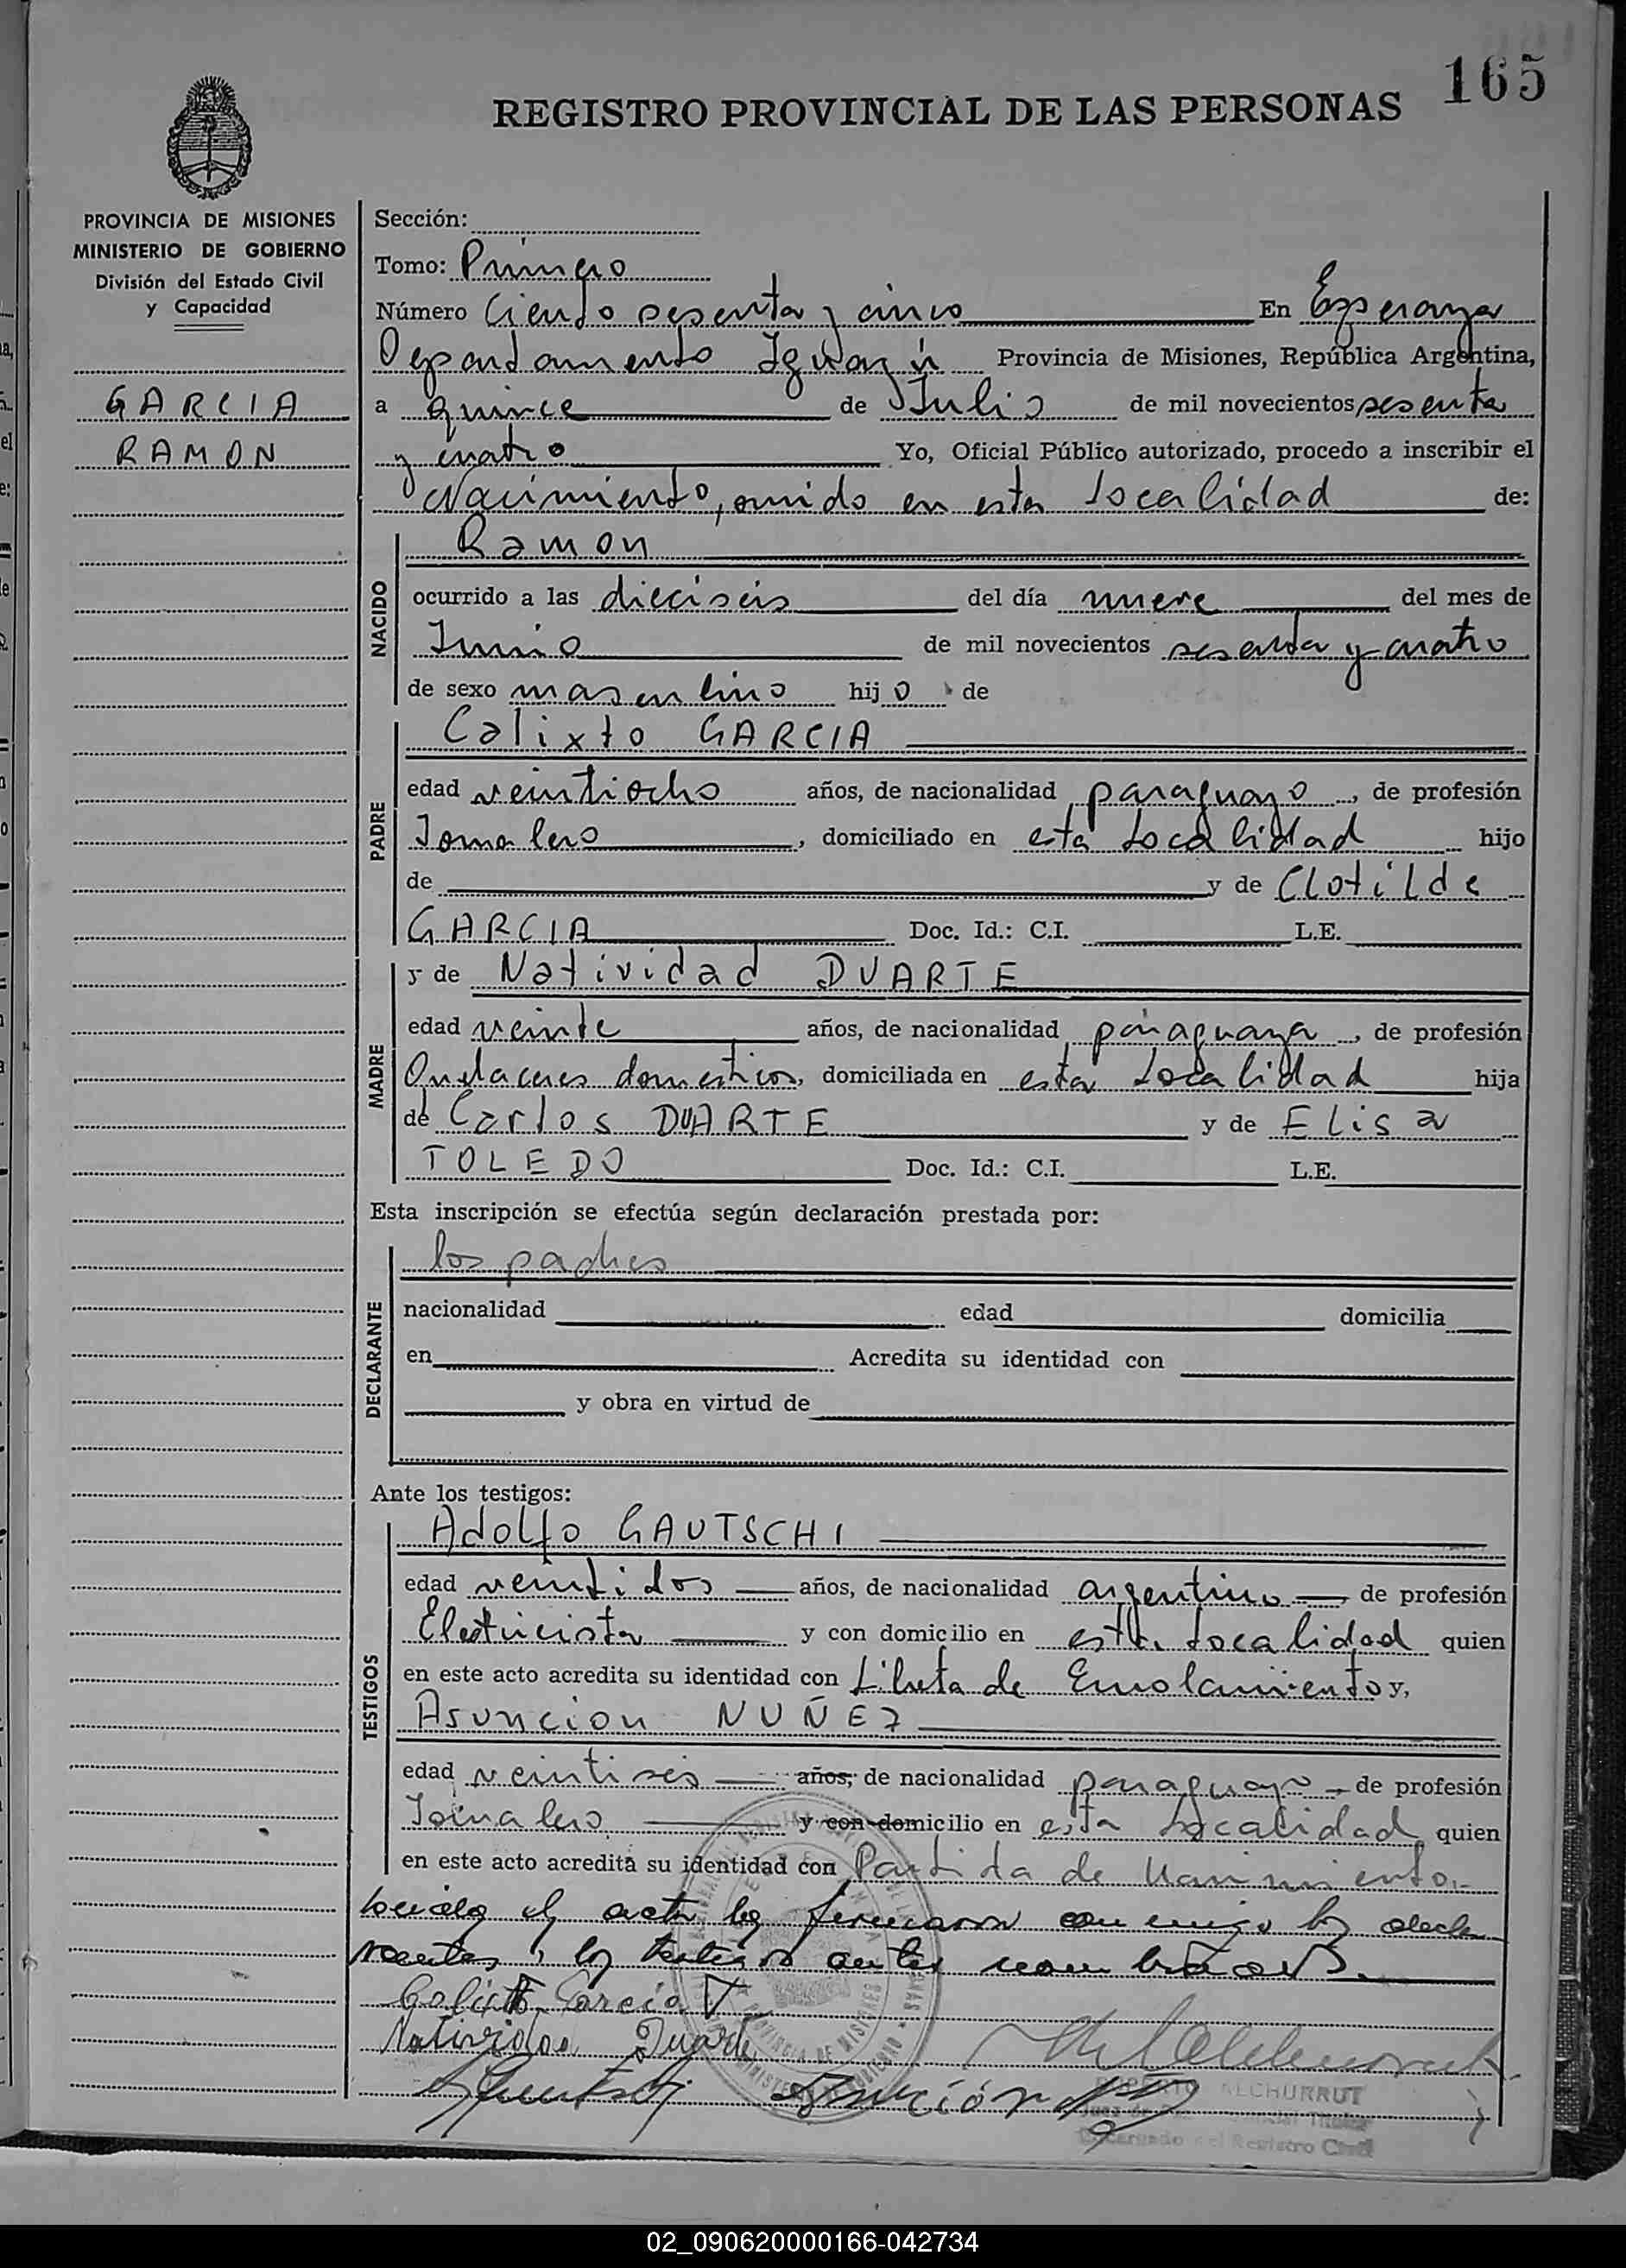 165
REGISTRO PROVINCIAL DE LAS PERSONAS
PROVINCIA DE MISIONES
MINISTERIO DE GOBIERNO
División del Estado Civil
y Capacidad
GARCIA
RAMON
Sección:
Tomo: Primero
Número Ciento sesenta y cinco En Esperanza
Departamento Iguazú Provincia de Misiones, República Argentina,
a quince de Julio de mil novecientos sesenta
y cuatro Yo, Oficial Público autorizado, procedo a inscribir el
Nacimiento, ocurrido en esta localidad de:
NACIDO
Ramon
ocurrido a las dieciseis del día nueve del mes de
Junio de mil novecientos sesenta y cuatro
de sexo masculino hijo de
PADRE
Calixto GARCIA
edad veintiocho años, de nacionalidad paraguayo, de profesión
Jornalero, domiciliado en esta Localidad hijo
de y de Clotilde
GARCIA Doc. Id.: C.I. L.E.
MADRE
y de Natividad DUARTE
edad veinte años, de nacionalidad paraguaya, de profesión
Quehaceres domesticos, domiciliada en esta Localidad hija
de Carlos DUARTE y de Elisa
TOLEDO Doc. Id.: C.I. L.E.
Esta inscripción se efectúa según declaración prestada por:
DECLARANTE
los padres
nacionalidad edad domicilia
en Acredita su identidad con
y obra en virtud de
Ante los testigos:
TESTIGOS
Adolfo GAUTSCHI
edad veintidos años, de nacionalidad argentino de profesión
Electricista y con domicilio en esta Localidad quien
en este acto acredita su identidad con Libreta de Enrolamiento y,
Asuncion NUÑEZ
edad veintiseis años, de nacionalidad paraguayo de profesión
Jornalero y con domicilio en esta Localidad quien
en este acto acredita su identidad con Partida de Nacimiento.-
el acta la firmaron con migo los decla
rantes y los testigos antes nombrados.
Calixto Garcia
Natividad Duarte
Asunción
ALCHURRUT
Encargado del Registro Civil
02_090620000166-042734